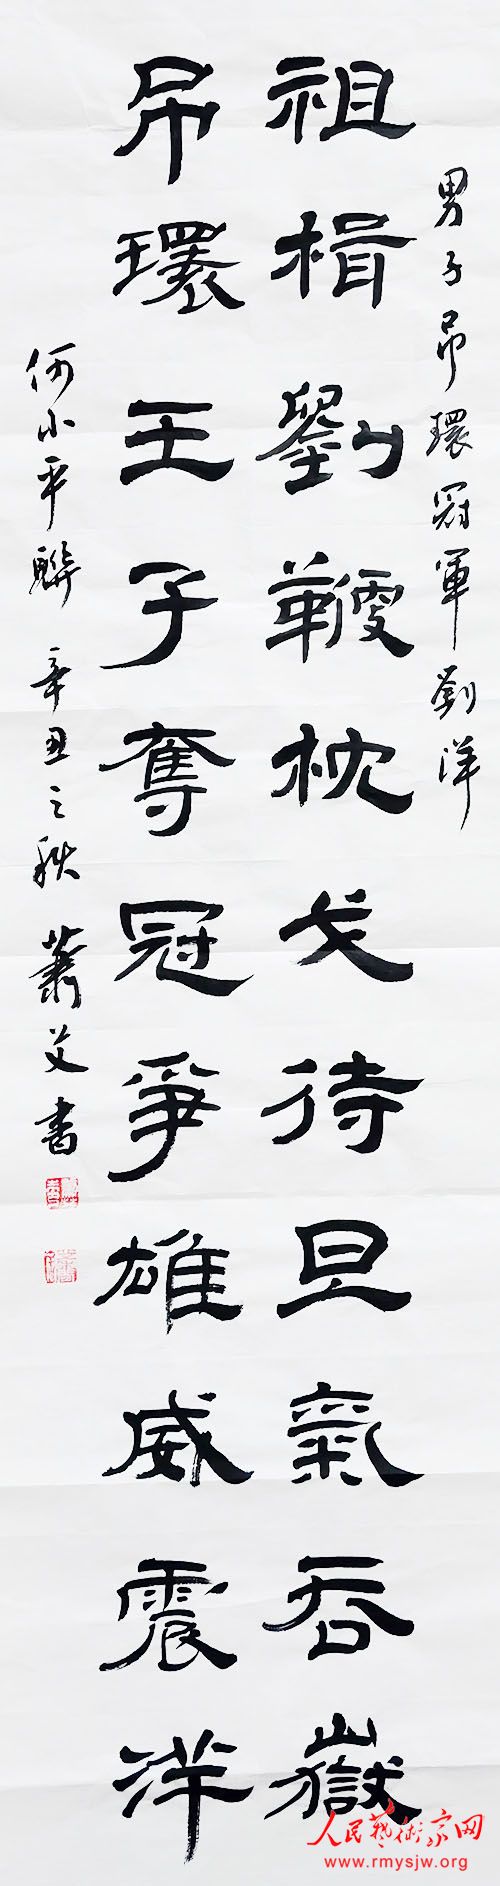 男子吊環冠軍劉洋
祖楫劉鞭枕戈待旦氣吞嶽
吊環王子奪冠爭雄威震洋
何小平聯 辛丑之秋 蕭艾書
人民藝術家网
www.rmysjw.org